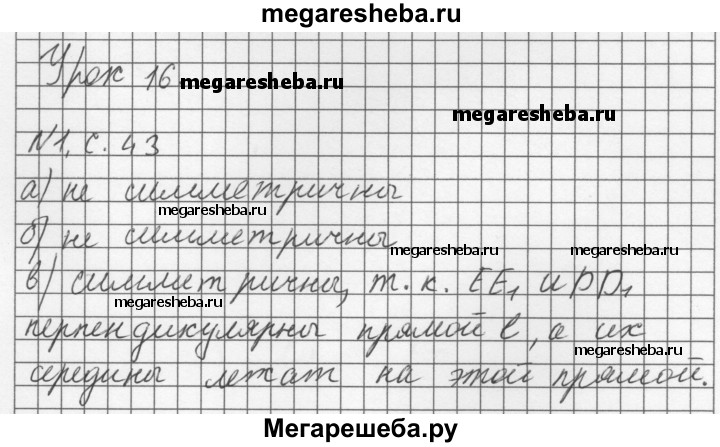 megaresheba.ru
Урок 16
megaresheba.ru
megaresheba.ru
N1, с. 43
а) не симметричны
megaresheba.ru
б) не симметричны
megaresheba.ru
megaresheba.ru
в) симметричны, т.к. EE₁ и DD₁
megaresheba.ru
перпендикулярны прямой l, а их
megaresheba.ru
середины лежат на этой прямой.
Мегарешеба.ру